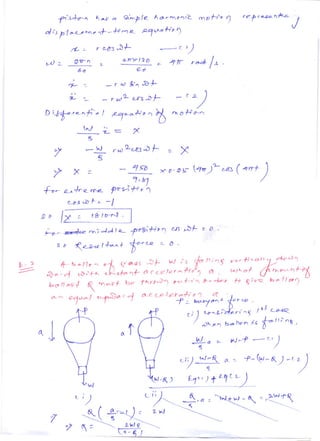 piston has a simple harmonic motion represented by
displacement-time equation
x = r cos ωt — (1)
ω = 2πn/60 = 2π×120/60 = 4π rad/s.
ẋ = - rω sin ωt
ẍ = - rω² cos ωt — (2)
Differential equation of motion
W/g ẍ = X
⇒ - W/g rω² cos ωt = X
⇒ X = - 450/9.81 × 0.25 (4π)² cos (4πt)
for extreme position
cos ωt = -1
so X = 1810 N.
for middle position cos ωt = 0.
so Resultant force = 0.
A balloon of gross wt W is falling vertically down
ward with constant acceleration a. what amount of
ballast Q must be thrown out in order to give balloon
an equal upward acceleration a
P = buoyant force.
P P
a a
(i) considering 1st case
when balloon is falling.
W/g a = W-P — (1)
(ii) W-Q/g a = P-(W-Q) — (2)
W (W-Q) Eq. (1) + eq (2)
(i) (ii)